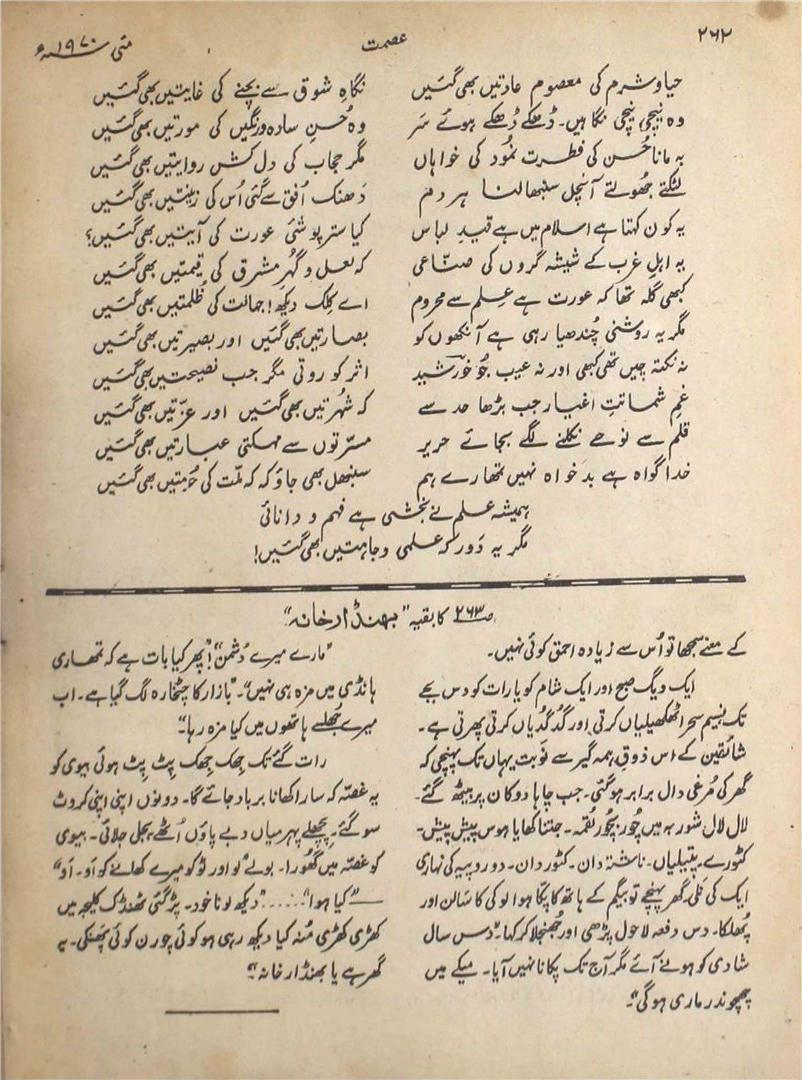 ۲۶۲
عصمت
مئی ۱۹۷۰ء
حیا و شرم کی معصوم عادتیں بھی گئیں
نگاہِ شوق سے بچنے کی غایتیں بھی گئیں
وہ نیچی نیچی نگاہیں۔ ڈھکے ڈھکے ہوئے سر
وہ حُسنِ سادہ و رنگیں کی مورتیں بھی گئیں
یہ مانا حُسن کی فطرت نمُود کی خواہاں
مگر حجاب کی دل کش روایتیں بھی گئیں
لٹکتے جھولتے آنچل سنبھالنا ہر دم
دَھنک اُفق سے گئی اُس کی زینتیں بھی گئیں
یہ کون کہتا ہے اسلام میں ہے قیدِ لباس
کیا ستر پوشئ عورت کی آیتیں بھی گئیں؟
یہ اہلِ غرب کے شیشہ گروں کی صنّاعی
کہ لعل و گہُر مشرق کی قیمتیں بھی گئیں
کبھی گلہ تھا کہ عورت ہے عِلم سے محروم
اے کِلک دیکھ! جہالت کی ظُلمتیں بھی گئیں
مگر یہ روشنی چُندھیا رہی ہے آنکھوں کو
بصارتیں بھی گئیں اور بصیرتیں بھی گئیں
نہ نکتہ چیں تھی کبھی اور نہ عیب جُو خورشید
اثر کو روتی مگر جب نصیحتیں بھی گئیں
غمِ شماتتِ اغیار جب بڑھا حد سے
کہ شُہرتیں بھی گئیں اور عزّتیں بھی گئیں
قلم سے نوحے نکلنے لگے بجائے حریر
مسرّتوں سے مہکتی عبارتیں بھی گئیں
خدا گواہ ہے بد خواہ نہیں تمھارے ہم
سنبھل بھی جاؤ کہ کہ ملّت کی حُرمتیں بھی گئیں
ہمیشہ علم نے بخشی ہے فہم و دانائی
مگر یہ دَور کہ علمی وجاہتیں بھی گئیں!
صـ۲۶۳ کا بقیہ "بھنڈار خانہ"
کے معنے سمجھا تو اُس سے زیادہ احمق کوئی نہیں۔
ایک ویگ صبح اور ایک شام کو یا رات کو دس بجے
تک نسیم سحر اٹھکھیلیاں کرتی اور گُدگُدیاں کرتی پھرتی ہے۔
شائقین کے اس ذوقِ ہمہ گیر سے نوبت یہاں تک پہنچی کہ
گھر کی مُرغی دال برابر ہو گئی۔ جب چاہا دوکان پر بیٹھ گئے۔
لال لال شوربہ میں چُور چُور لقمہ۔ جتنا کھایا ہوس پیش پیش۔
کٹورے۔ پتیلیاں۔ ناشتہ دان۔ کٹوردان۔ دو روپیہ کی نہاری
ایک کی نلی۔ گھر پہنچے تو بیگم کے ہاتھ کا پکا ہوا لوکی کا سَالن اور
پُھلکا۔ دس دفعہ لاحول پڑھی اور جُھنجلا کر کہا۔ "دس سال
شادی کو ہونے آئے مگر آج تک پکانا نہیں آیا۔ میکے میں
چھچوندر ماری ہوگی"۔
"مارے میرے دُشمن"! "پھر کیا بات ہے کہ تمھاری
ہانڈی میں مزہ ہی نہیں"۔ "بازار کا چٹخارہ لگ گیا ہے۔ اب
میرے جُھلسے ہاتھوں میں کیا مزہ رہا"۔
رات گئے تک جھِک جھِک پِٹ پِٹ ہوئی بیوی کو
یہ غصّہ کہ سارا کھانا برباد جائے گا۔ دونوں اپنی اپنی کروٹ
سو گئے۔ پچھلے پہر میاں دبے پاؤں اُٹھے بجلی جلائی۔ بیوی
کو غصّہ میں گھورا۔ بولے "لو اور ٹوکو میرے کھانے کو اَو۔ اَو"
—"کیا ہوا"...... "دیکھ لو نا خود۔ پڑ گئی ٹھنڈک کلیجہ میں
کھڑی کھڑی مُنہ کیا دیکھ رہی ہو کوئی چورن کوئی پھنکی۔ یہ
گھر ہے یا بھنڈار خانہ"؟